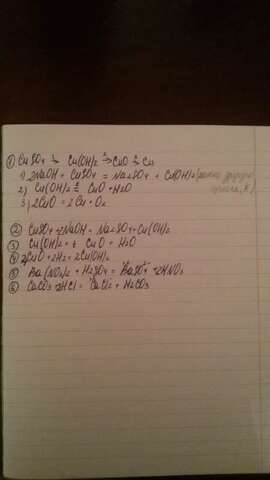 ① CuSO4 1→ Cu(OH)2 2→ CuO 3→ Cu
1) 2NaOH + CuSO4 = Na2SO4 + Cu(OH)2 (
2) Cu(OH)2 = CuO + H2O
3) 2CuO = 2Cu + O2
② CuSO4 + 2NaOH = Na2SO4 + Cu(OH)2
③ Cu(OH)2 = t CuO + H2O
④ 2CuO + 2H2 = 2Cu(OH)2
⑤ Ba(NO3)2 + H2SO4 = BaSO4 + 2HNO3
⑥ CaCO3 + 2HCl = CaCl2 + H2CO3